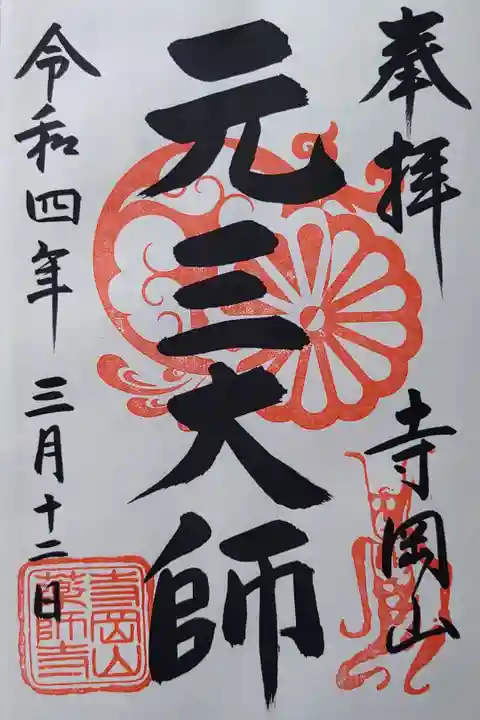 奉拝
寺岡山
元三大師
令和四年
三月十二日
寺岡山
薬師寺